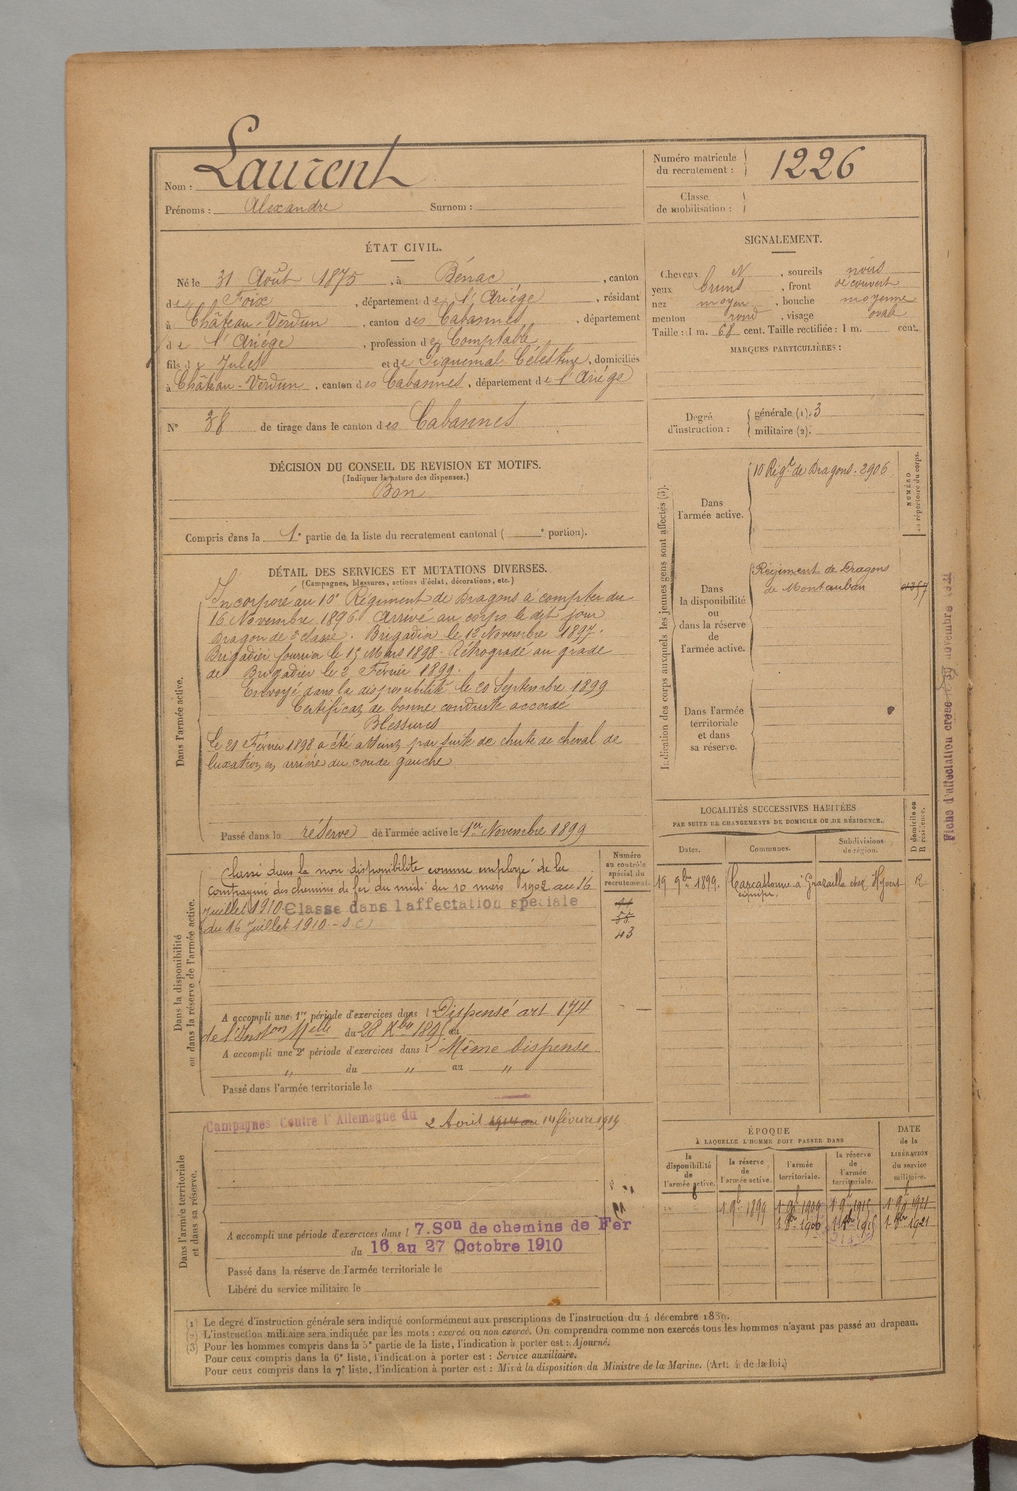 Nom : Laurent
Prénoms : Alexandre Surnom :
Numéro matricule du recrutement : 1226
Classe de mobilisation :
ÉTAT CIVIL.
Né le 31 Août 1875, à Bénac, canton
de Foix, département de l'Ariége, résidant
à Château-Verdun, canton des Cabannes, département
de l'Ariége, profession de Comptable
fils de Jules et de Piquemal Célestine, domiciliés
à Château-Verdun, canton des Cabannes, département de l'Ariége
N° 38 de tirage dans le canton des Cabannes
DÉCISION DU CONSEIL DE REVISION ET MOTIFS.
(Indiquer la nature des dispenses.)
Bon
Compris dans la 1e partie de la liste du recrutement cantonal ( e portion).
SIGNALEMENT.
Cheveux N, sourcils noirs
yeux bruns, front découvert
nez moyen, bouche moyenne
menton rond, visage oval
Taille : 1 m. 68 cent. Taille rectifiée : 1 m. cent.
MARQUES PARTICULIÈRES :
Degré d'instruction : générale (1). 3
militaire (2).
DÉTAIL DES SERVICES ET MUTATIONS DIVERSES.
(Campagnes, blessures, actions d'éclat, décorations, etc.)
Dans l'armée active.
Incorporé au 10e Régiment de Dragons à compter du
16 Novembre 1896. Arrivé au corps le dit jour
dragon de 2e classe. Brigadier le 12 Novembre 1897.
Brigadier fourrier le 15 Mars 1898. Rétrogradé au grade
de Brigadier le 2 Février 1899.
Envoyé dans la disponibilité le 20 Septembre 1899
Certificat de bonne conduite accordé
Blessures
Le 21 Février 1898 a été atteint par suite de chute de cheval de
luxation en arrière du coude gauche
Passé dans la réserve de l'armée active le 1er Novembre 1899
Indication des corps auxquels les jeunes gens sont affectés (3).
Dans l'armée active.
10 Régt de Dragons. 2906
NUMÉRO au répertoire du corps.
Dans la disponibilité ou dans la réserve de l'armée active.
Régiment de Dragons
de Montauban
Dans l'armée territoriale et dans sa réserve.
Fiche d'affectation créée novembre
LOCALITÉS SUCCESSIVES HABITÉES
PAR SUITE DE CHANGEMENTS DE DOMICILE OU DE RÉSIDENCE.
Dates. Communes. Subdivisions de région. D domicile ou R résidence.
19 9bre 1899. Carcassonne R
Dans la disponibilité ou dans la réserve de l'armée active.
Numéro au contrôle spécial du recrutement.
Classé dans la non disponibilité comme employé de la
compagnie des chemins de fer du midi du 10 mars 1902 au 16
juillet 1910. Classé dans l'affectation spéciale
(du 16 juillet 1910 - S C)
55
43
A accompli une 1re période d'exercices dans l Dispensé art 174
de l'Inston Melle du 28 Xbre 1895 au
A accompli une 2e période d'exercices dans l Même dispense
" du " au "
Passé dans l'armée territoriale le
Dans l'armée territoriale et dans sa réserve.
Campagnes Contre l'Allemagne du 2 Avril 14 février 1919
A accompli une période d'exercices dans l 7. Son de chemins de Fer
du 16 au 27 Octobre 1910
Passé dans la réserve de l'armée territoriale le
Libéré du service militaire le
ÉPOQUE
À LAQUELLE L'HOMME DOIT PASSER DANS
DATE de la LIBÉRATION du service militaire.
la disponibilité de l'armée active. la réserve de l'armée active. l'armée territoriale. la réserve de l'armée territoriale.
(1) Le degré d'instruction générale sera indiqué conformément aux prescriptions de l'instruction du 4 décembre 1889.
(2) L'instruction militaire sera indiquée par les mots : exercé ou non exercé. On comprendra comme non exercés tous les hommes n'ayant pas passé au drapeau.
(3) Pour les hommes compris dans la 5e partie de la liste, l'indication à porter est : Ajourné.
Pour ceux compris dans la 6e liste, l'indication à porter est : Service auxiliaire.
Pour ceux compris dans la 7e liste, l'indication à porter est : Mis à la disposition du Ministre de la Marine. (Art. 4 de la loi.)